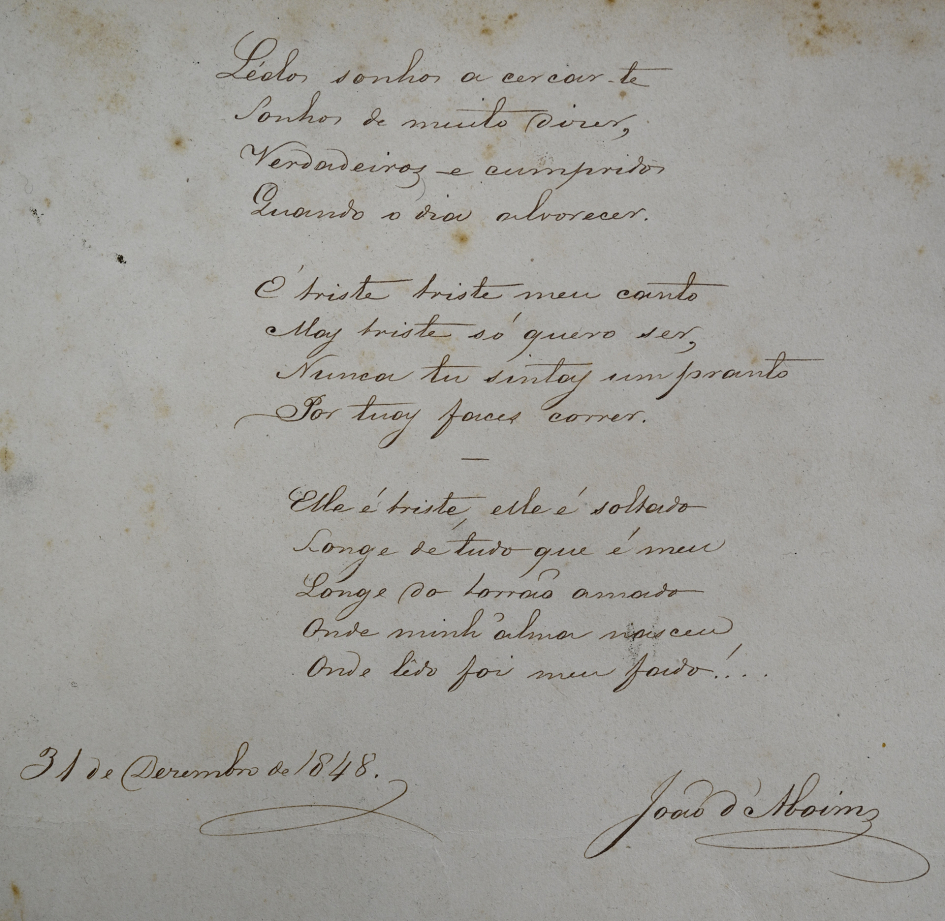 Lédos sonhos a cercar-te
Sonhos de muito dizer,
Verdadeiros e cumpridos
Quando o dia alvorecer.
É triste triste meu canto
Mas triste só quero ser,
Nunca tu sintas um pranto
Por tuas faces correr.
—
Elle é triste, elle é soltado
Longe de tudo que é meu
Longe do torrão amado
Onde minh'alma nasceu
Onde lêdo foi meu fado!....
31 de Dezembro de 1848.
João d'Aboim